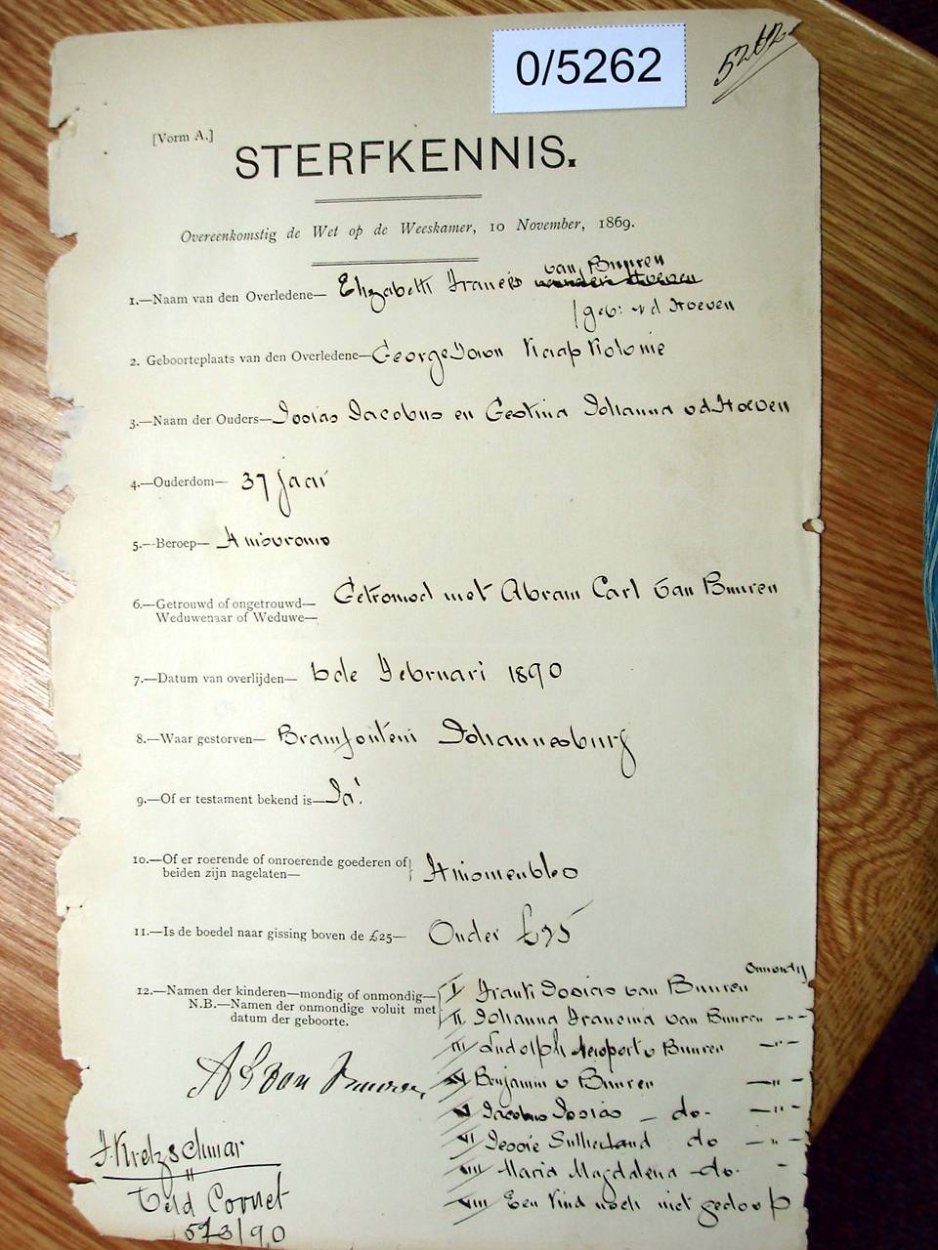 0/5262
5262
[Vorm A.]
STERFKENNIS.
Overeenkomstig de Wet op de Weeskamer, 10 November, 1869.
van Buuren
1.—Naam van den Overledene— Elizabeth Francis
(geb: v d Hoeven
2. Geboorteplaats van den Overledene—GeorgeTown Kaap Kolonie
3.—Naam der Ouders—Josias Jacobus en Gestina Johanna v d Hoeven
4.—Ouderdom— 37 jaar
5.—Beroep— Huisvrouw
6.—Getrouwd of ongetrouwd— Getrouwd met Abram Carl Van Buuren
Weduwenaar of Weduwe—
7.—Datum van overlijden— 6de Februari 1890
8.—Waar gestorven— Bramfontein Johannesburg
9.—Of er testament bekend is—Ja!
10.—Of er roerende of onroerende goederen of
beiden zijn nagelaten— Huismeubles
11.—Is de boedel naar gissing boven de £25— Onder £25
Onmondig
12.—Namen der kinderen—mondig of onmondig— I Frans Josias van Buuren
N.B.—Namen der onmondige voluit met II Johanna Francina van Buuren —"—
datum der geboorte.
III Ludolph v Buuren —"—
IV Benjamin v Buuren —"—
V Jacobus Josias — do. —"—
VI Jessie Sutherland do —"—
VII Maria Magdalena —do. -
VIII Een kind noch niet gedoop
van Buuren
F. Kretzschmar
Veld Cornet
573/90